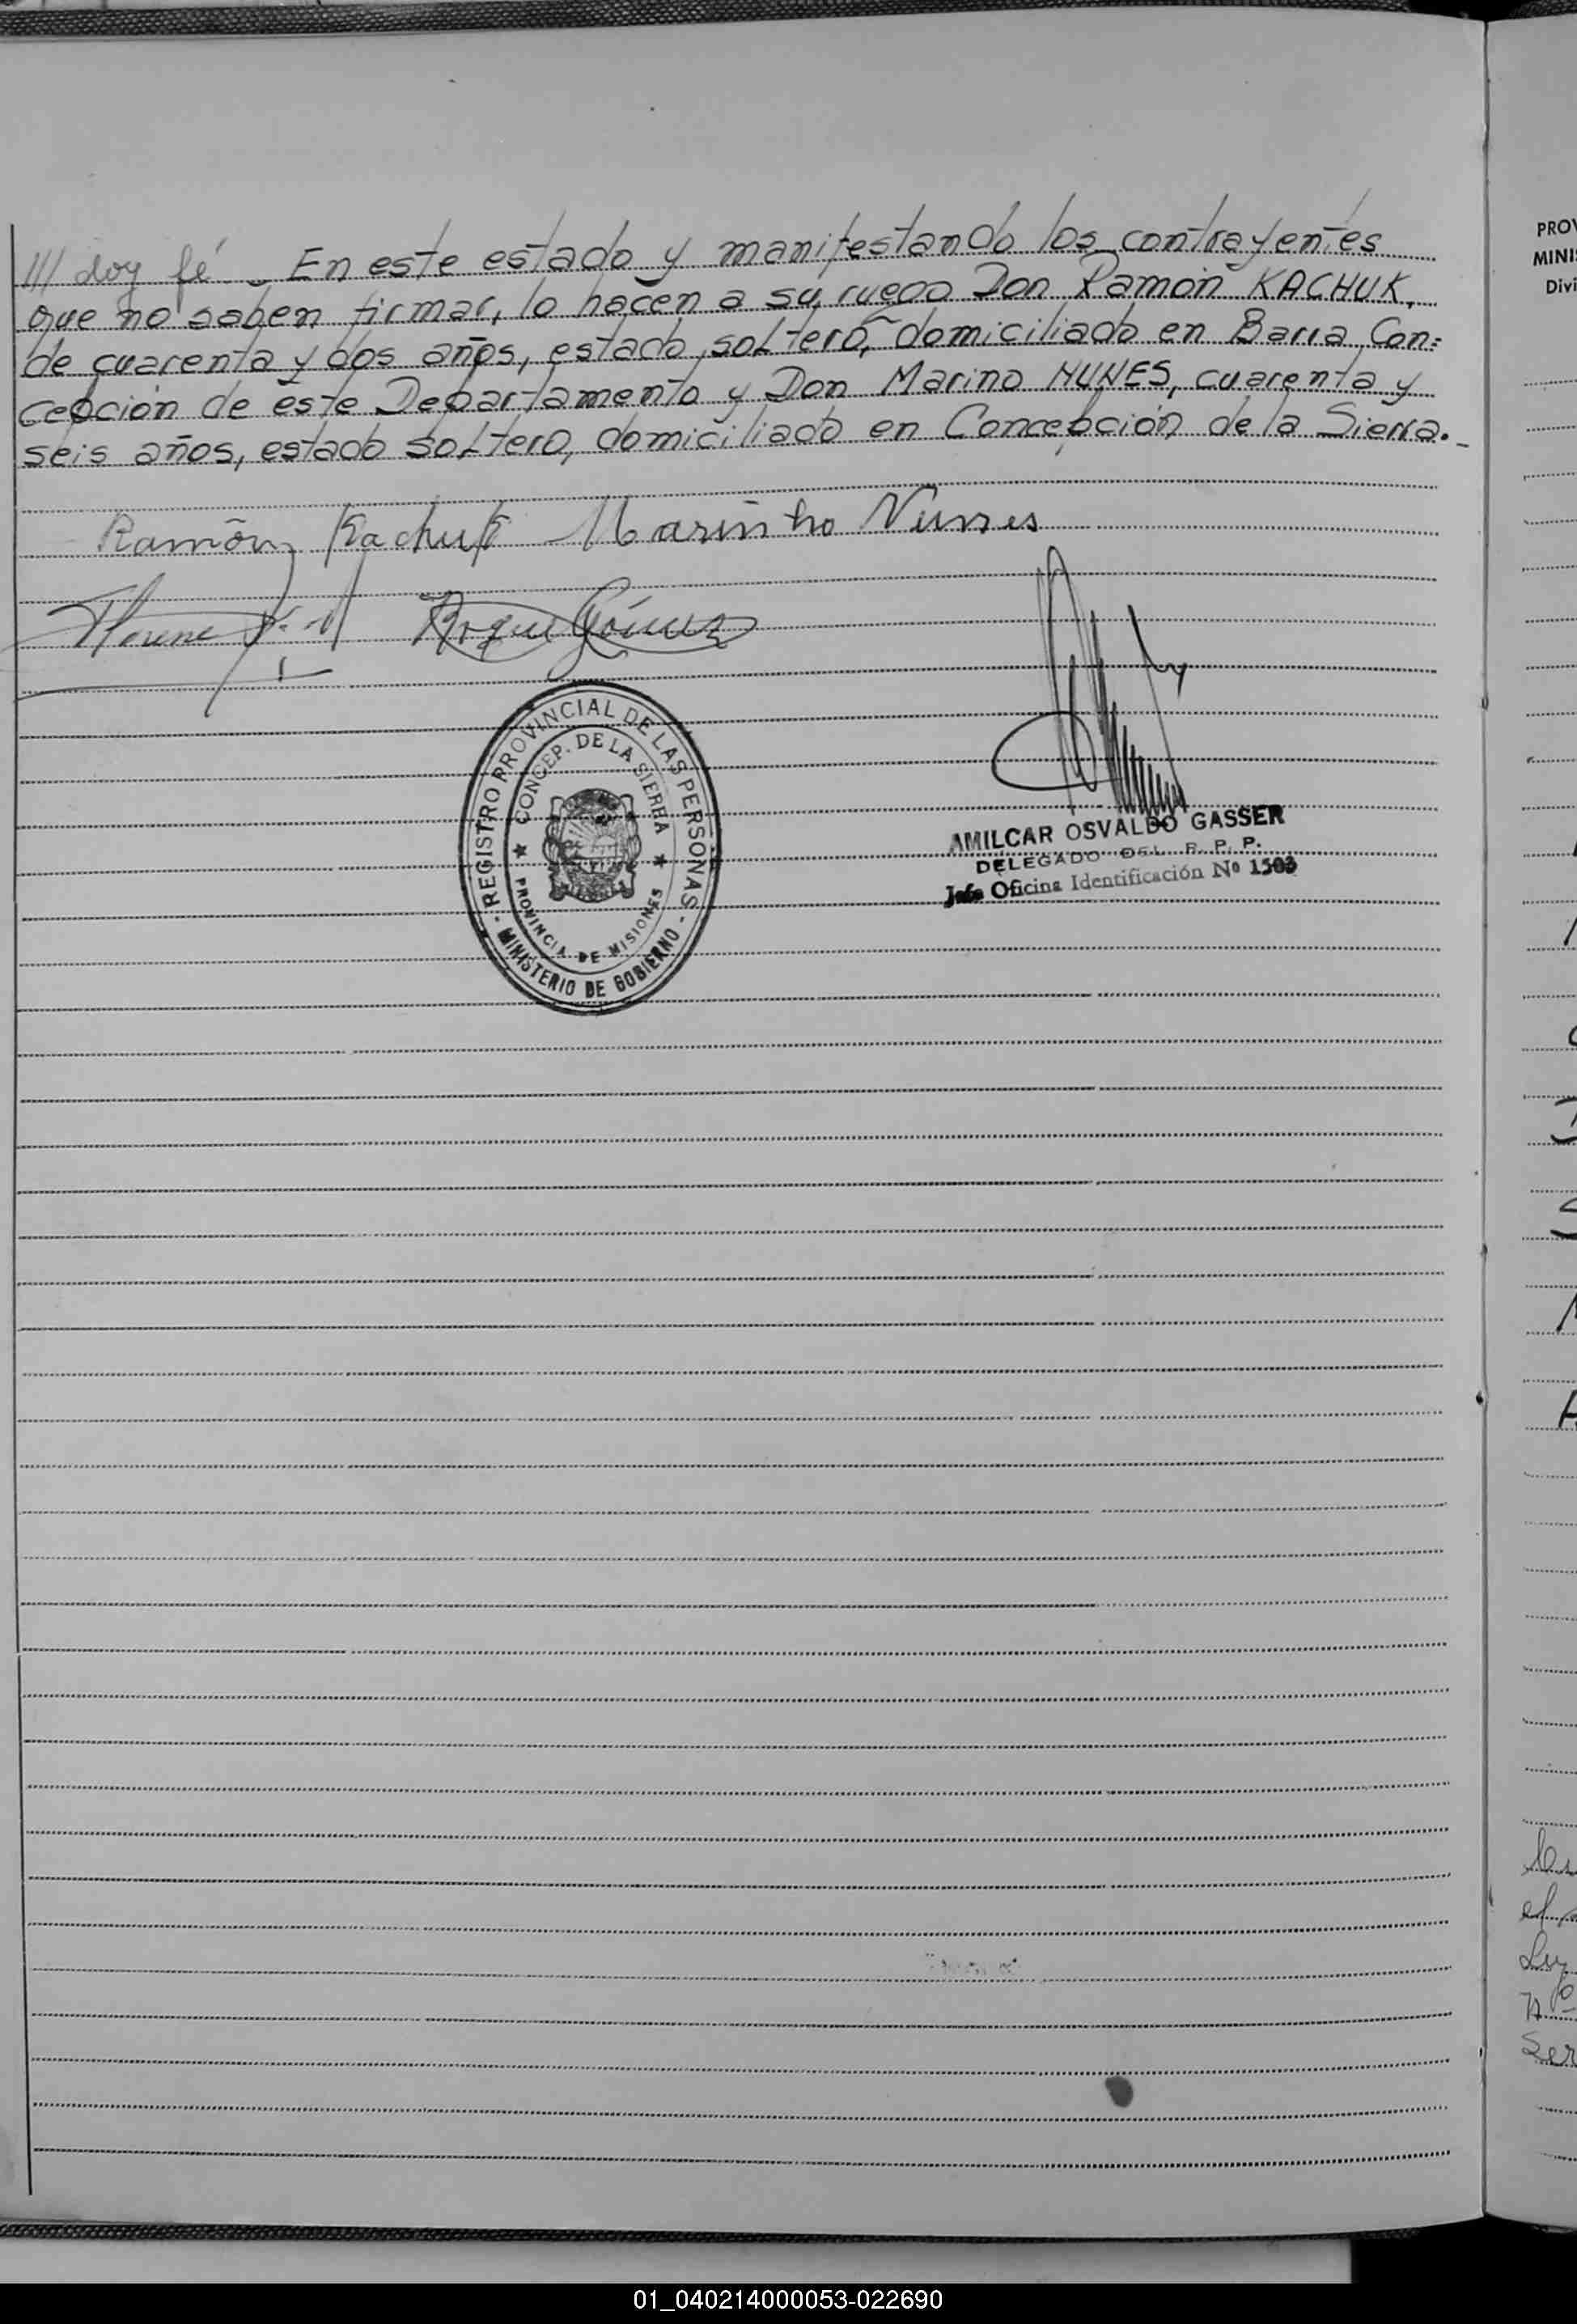 /// doy fé. En este estado y manifestando los contrayentes
que no saben firmar, lo hacen a su ruego Don Ramón KACHUK,
de cuarenta y dos años, estado soltero, domiciliado en Barra Con=
cepción de este Departamento y Don Marino NUNES, cuarenta y
seis años, estado soltero, domiciliado en Concepción de la Sierra.-
Ramón Kachuk Marinho Nunes
Roque Gómez
REGISTRO PROVINCIAL DE LAS PERSONAS
- MINISTERIO DE GOBIERNO -
CONCEP. DE LA SIERRA
PROVINCIA DE MISIONES
AMILCAR OSVALDO GASSER
DELEGADO DEL R. P. P.
Jefe Oficina Identificación Nº 1503
PROV
MINIS
Divi
Ser
01_040214000053-022690